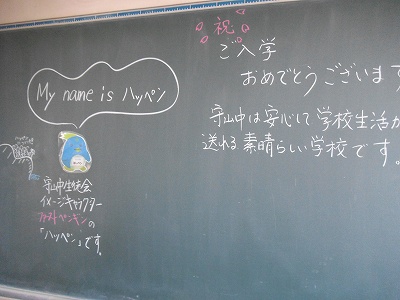 My name is ハッペン
守山中生徒会
イメージキャラクター
ペンギンの
「ハッペン」です。
祝
ご入学
おめでとうございます
守山中は安心して学校生活が
送れる素晴らしい学校です。